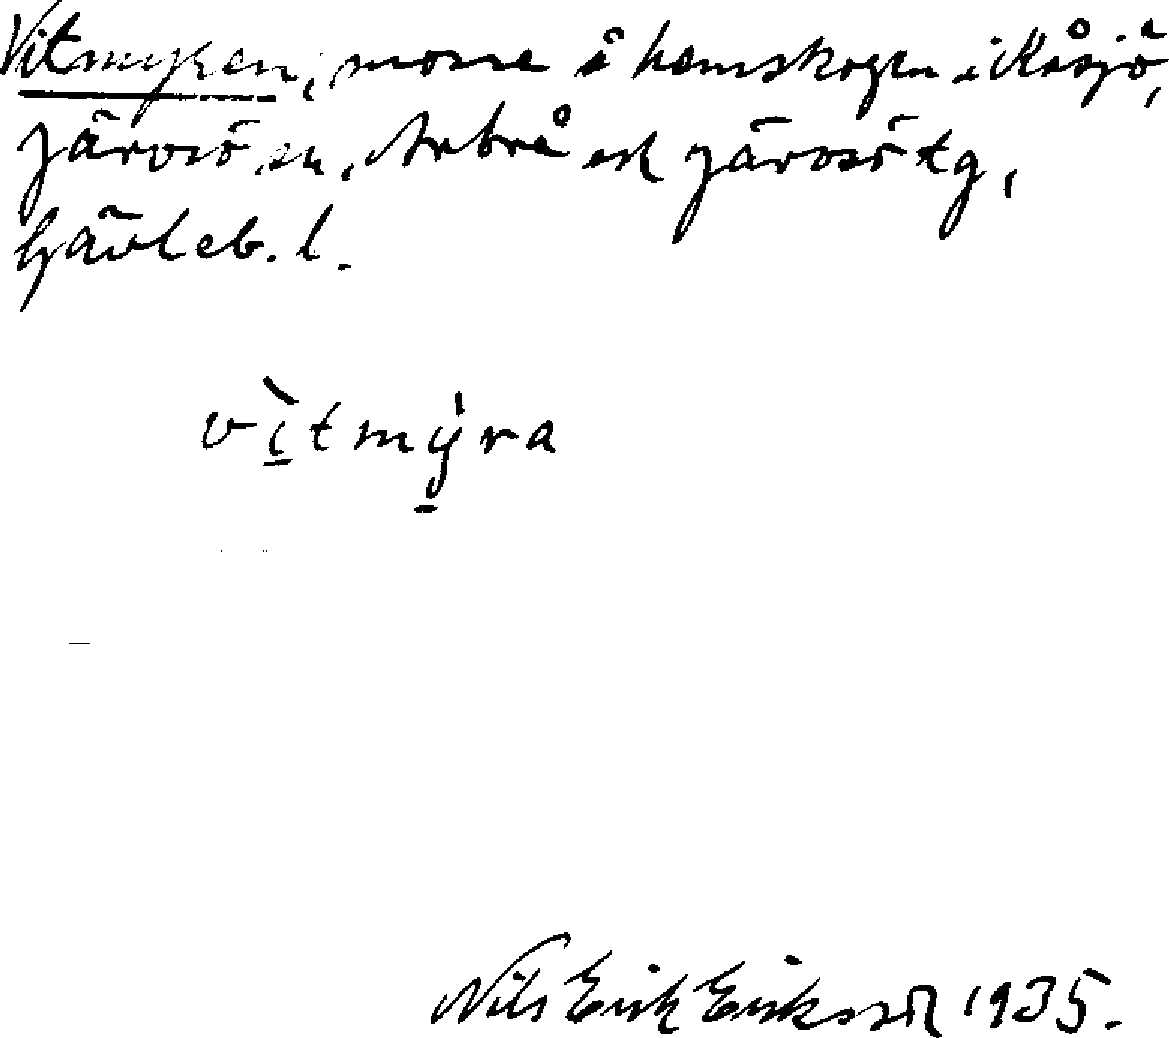 Vitmyren, mosse å hemskogen i Kåsjö,
Järvsö sn, Arbrå och Järvsö tg,
Gävleb. l.
vìtmýra
Nils Erik Eriksson 1935.